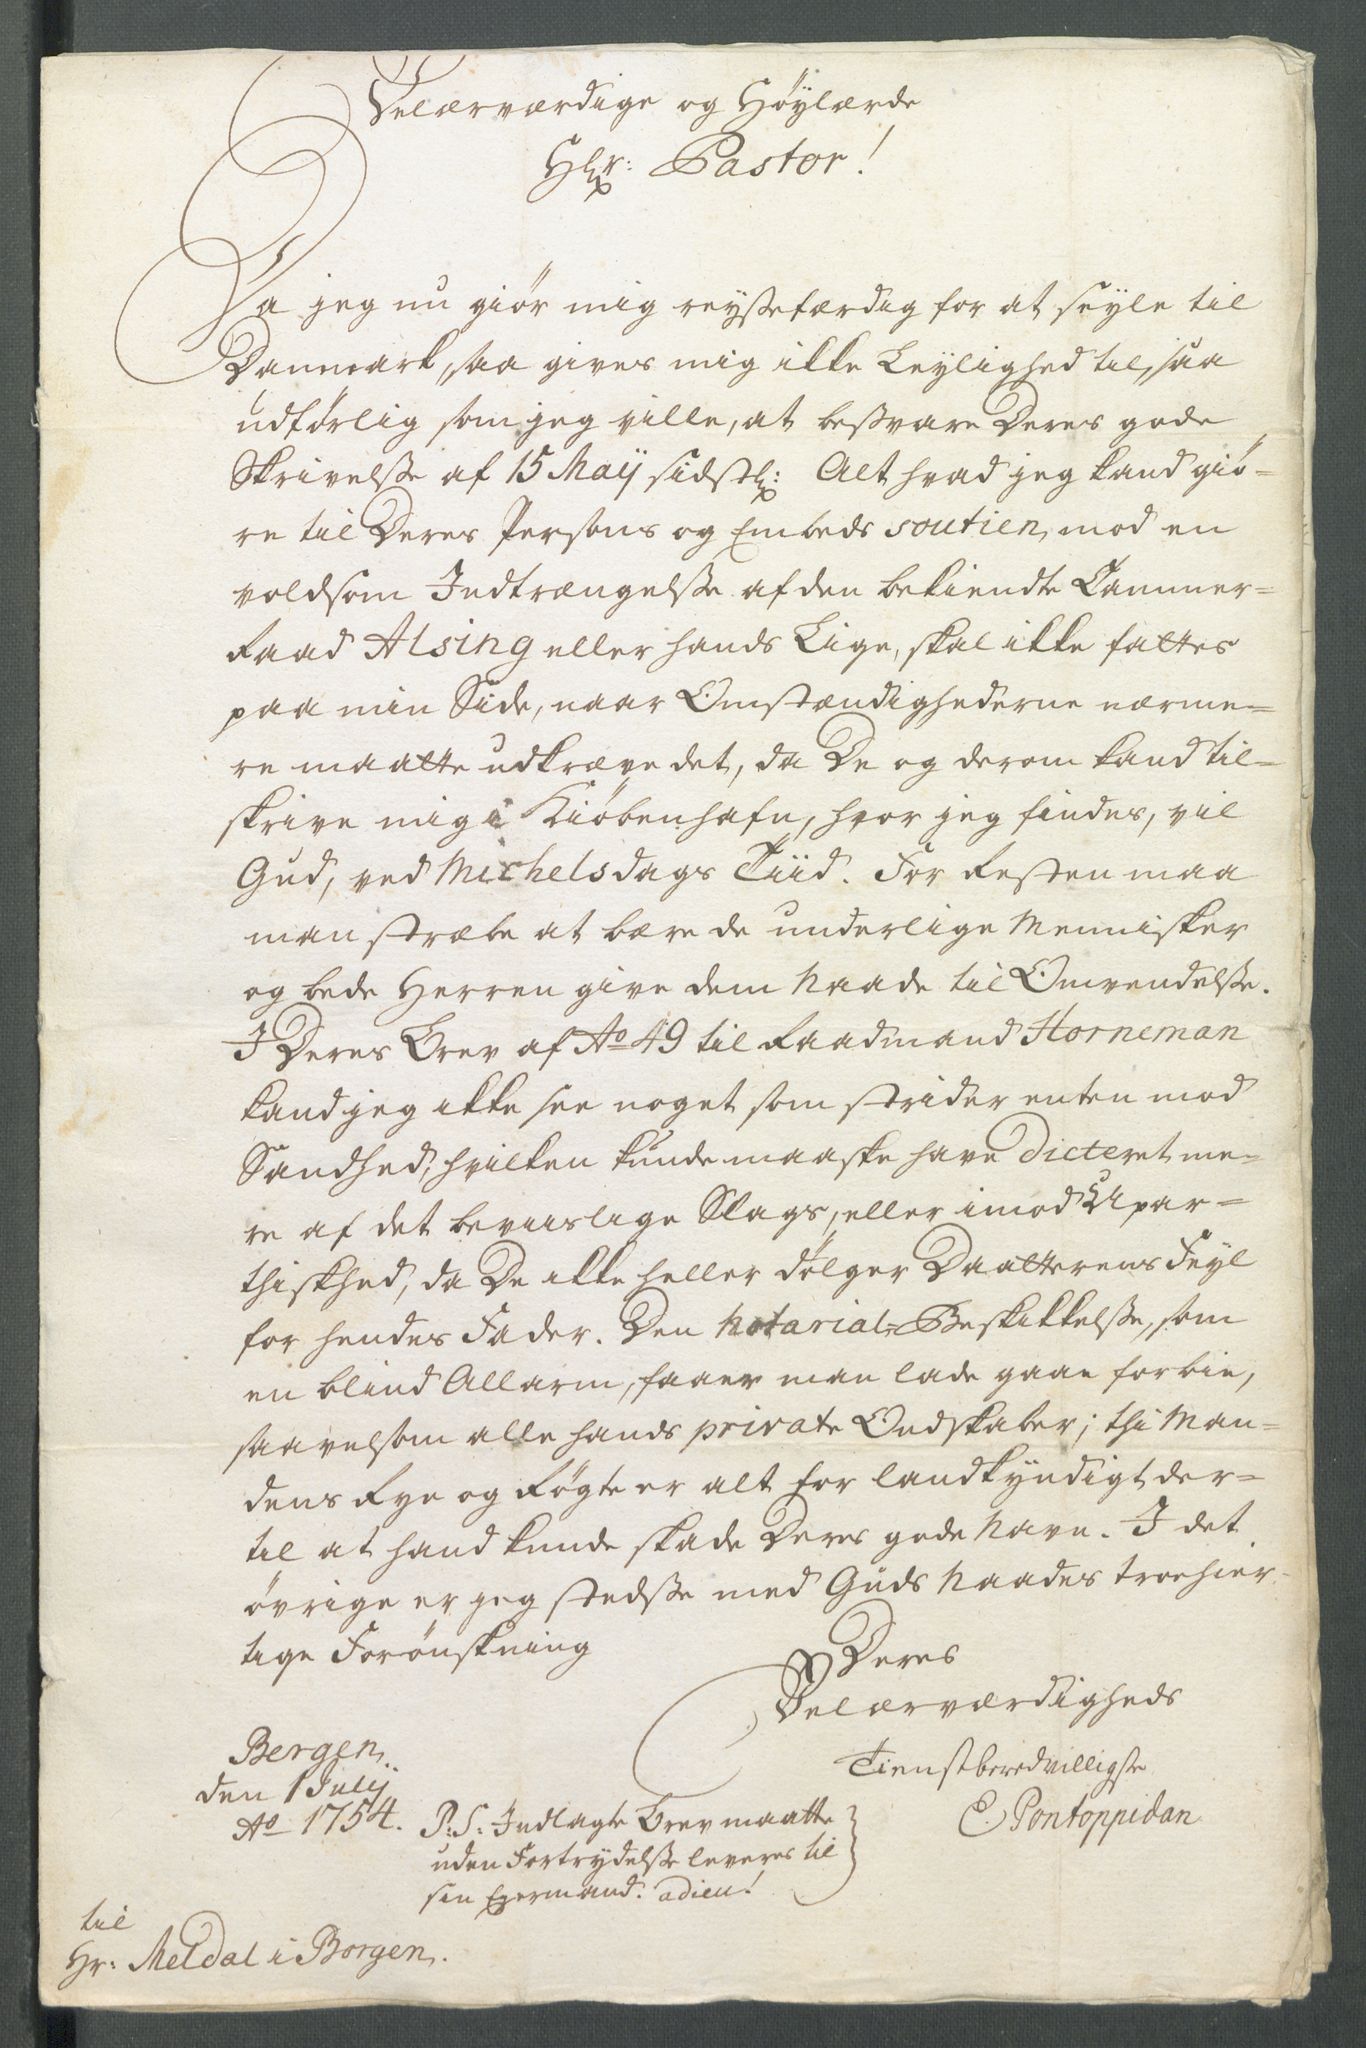 Velærværdige og Høylærde
Hr: Pastor!
Da jeg nu giør mig reyssefærdig for at seyle til
Danmark, saa gives mig ikke Leylighed til, saa
udførlig som jeg ville, at besvare Deres gode
Skrivelsse af 15 Maij sidstl: Alt hvad jeg kand giö-
re til Deres Persons og Embeds soutien, mod en
voldsom Indtrængelsse af den bekiendte Cammer-
Raad Alsing eller hands Lige, skal ikke fattes
paa min Side, naar Omstændighederne nærme-
re maatte udkræve det, da De og derom kand til-
skrive mig i Kiöbenhafn, hvor jeg findes, vil
Gud, ved Michelsdags Tiid. For Resten maa
man stræbe at bære de underlige Mennisker
og bede Herren give dem Naade til Omvendelsse.
I Deres Brev af Ao 49 til Raadmand Horneman
kand jeg ikke see noget som strider enten mod
Sandhed, hvilken kunde maaske have dicteret me-
re af det beviislige Slags, eller imod Upar-
thiskhed, da De ikke heller dølger Daatterens Feyl
for hendes Fader. Den Notarial-Beskikkelsse, som
en blind Allarm, faaer man lade gaae forbie,
saavelsom alle hands private Ondskaber; thi Man-
dens Rye og Røgte er alt for landkyndigt der-
til at hand kunde skade Deres gode Navn. I det
övrige er jeg stedsse med Guds Naades troehier-
tige Forönskning
Deres
Velærværdigheds
Tienstberedvilligste
E. Pontoppidan
Bergen,
den 1 Julij
Ao 1754.
P: S: Indlagte Brev maatte
uden Fortrydelsse leveres til
sin Eyermand. adieu!
til
Hr: Meldal i Borgen.